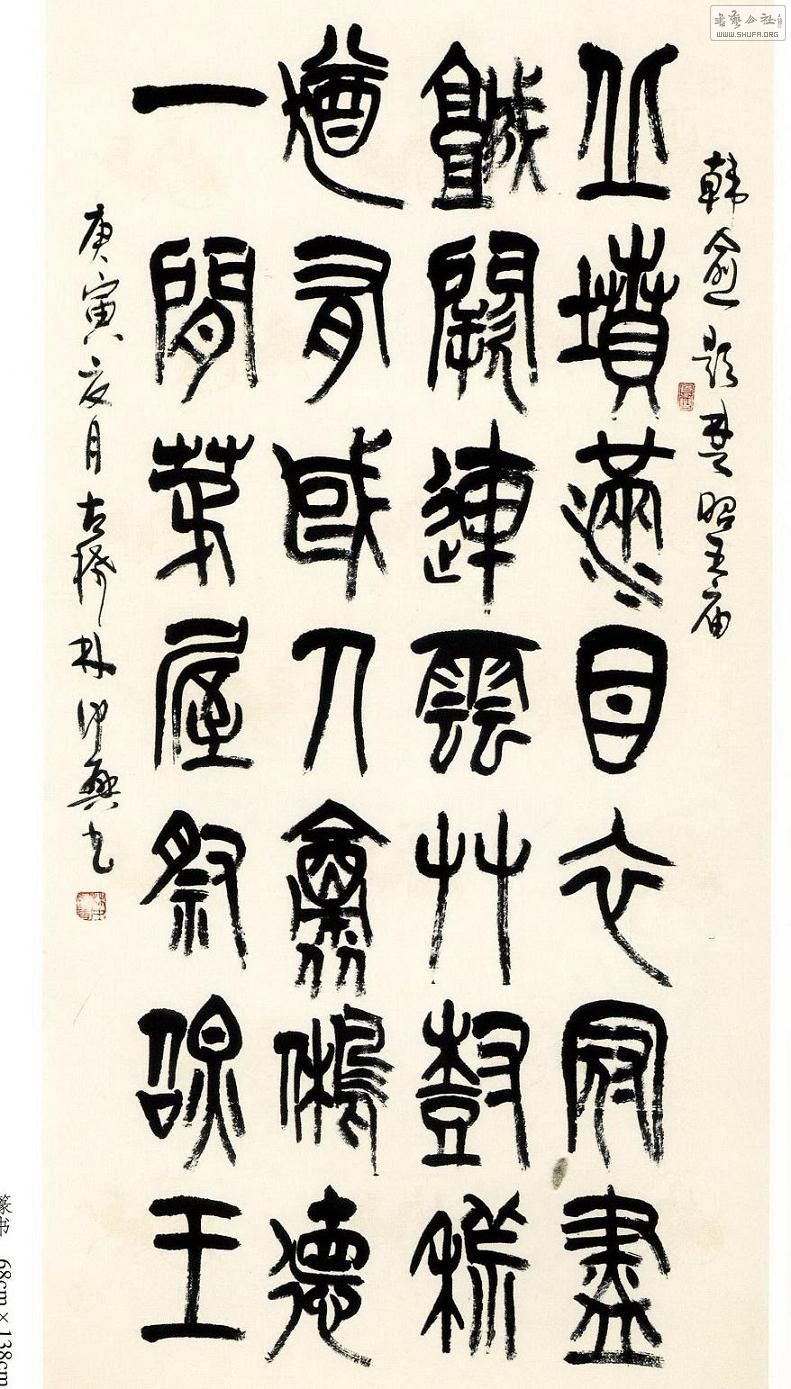 韓愈題楚昭王廟
丘墳滿目衣冠盡
城闕連雲艸樹荒
猶有國人懷舊德
一間茅屋祭昭王
庚寅夏月古稀林仲興書
篆书 68cm×138cm
书艺公社
WWW.SHUFA.ORG